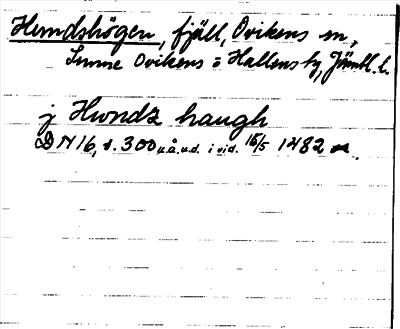 Hundshögen, fjäll, Ovikens sn,
Sunne Ovikens o Hallens tg, Jämtl. l.
j Hwndz haugh
DN 16, s. 300 u.å.u.d. i vid. 15/5 1482